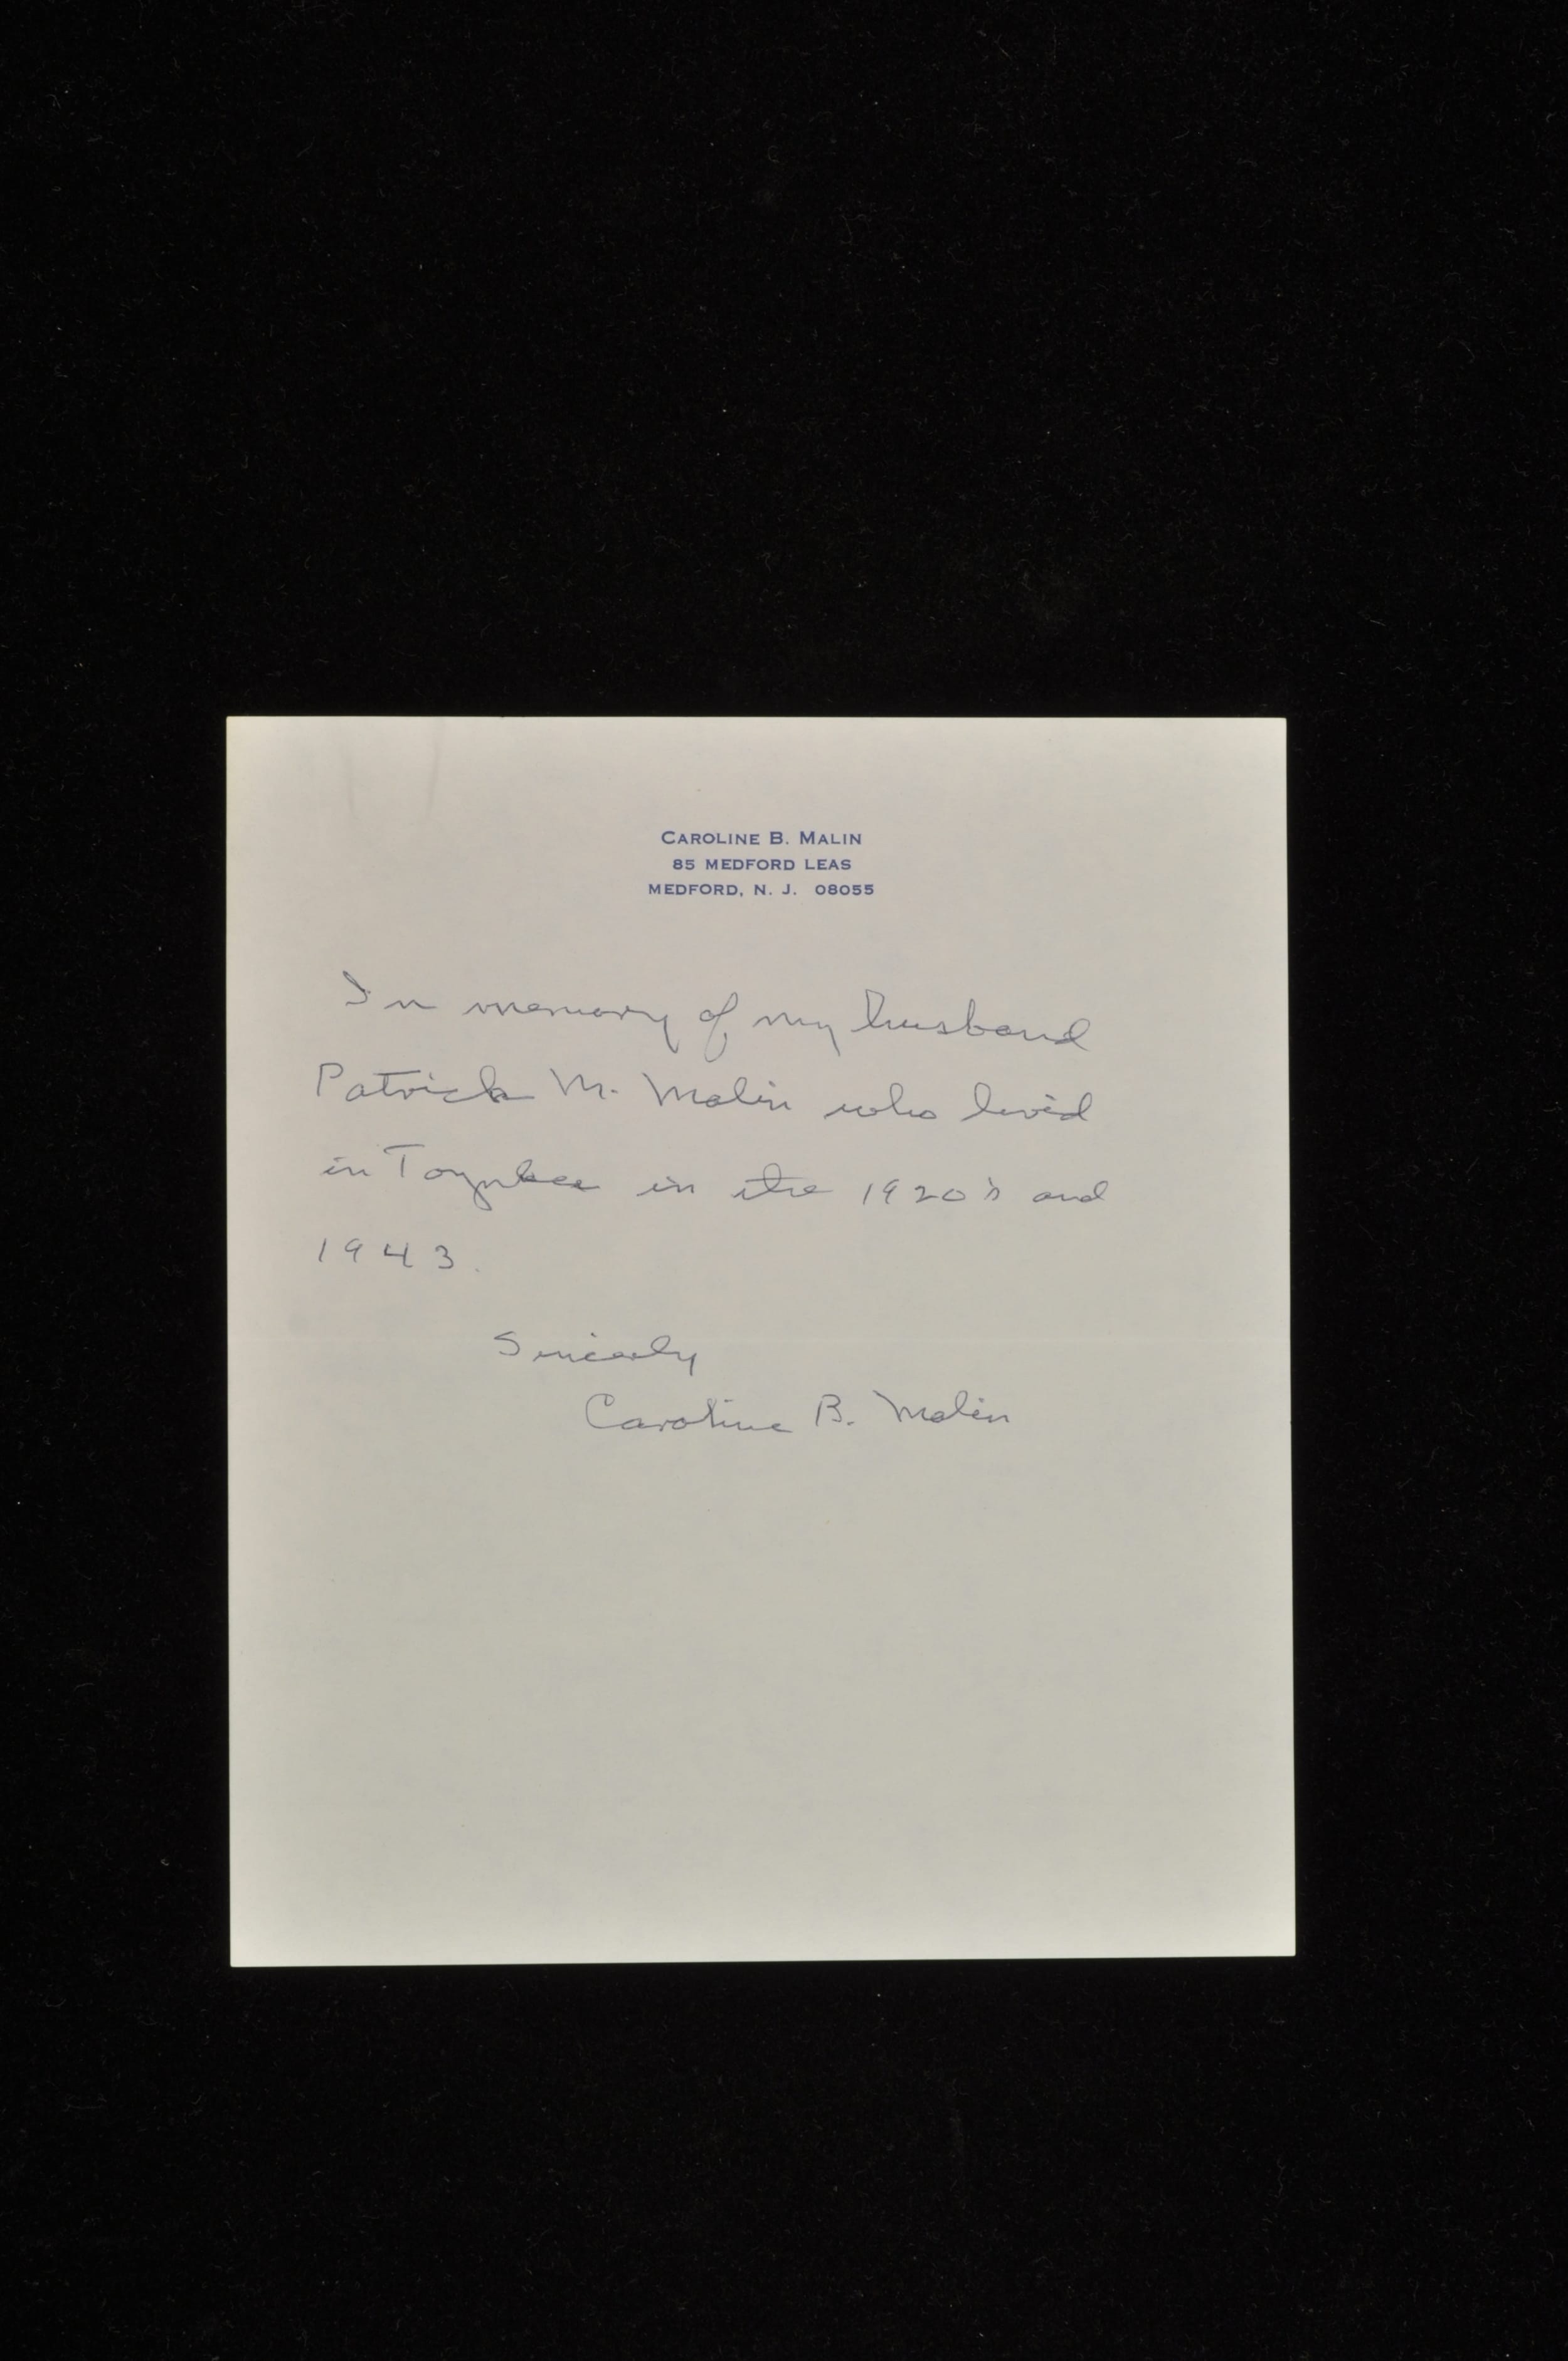 CAROLINE B. MALIN
85 MEDFORD LEAS
MEDFORD, N. J. 08055
In memory of my husband
Patrick M. Malin who lived
in Toynbee in the 1920's and
1943.
Sincerely
Caroline B. Malin